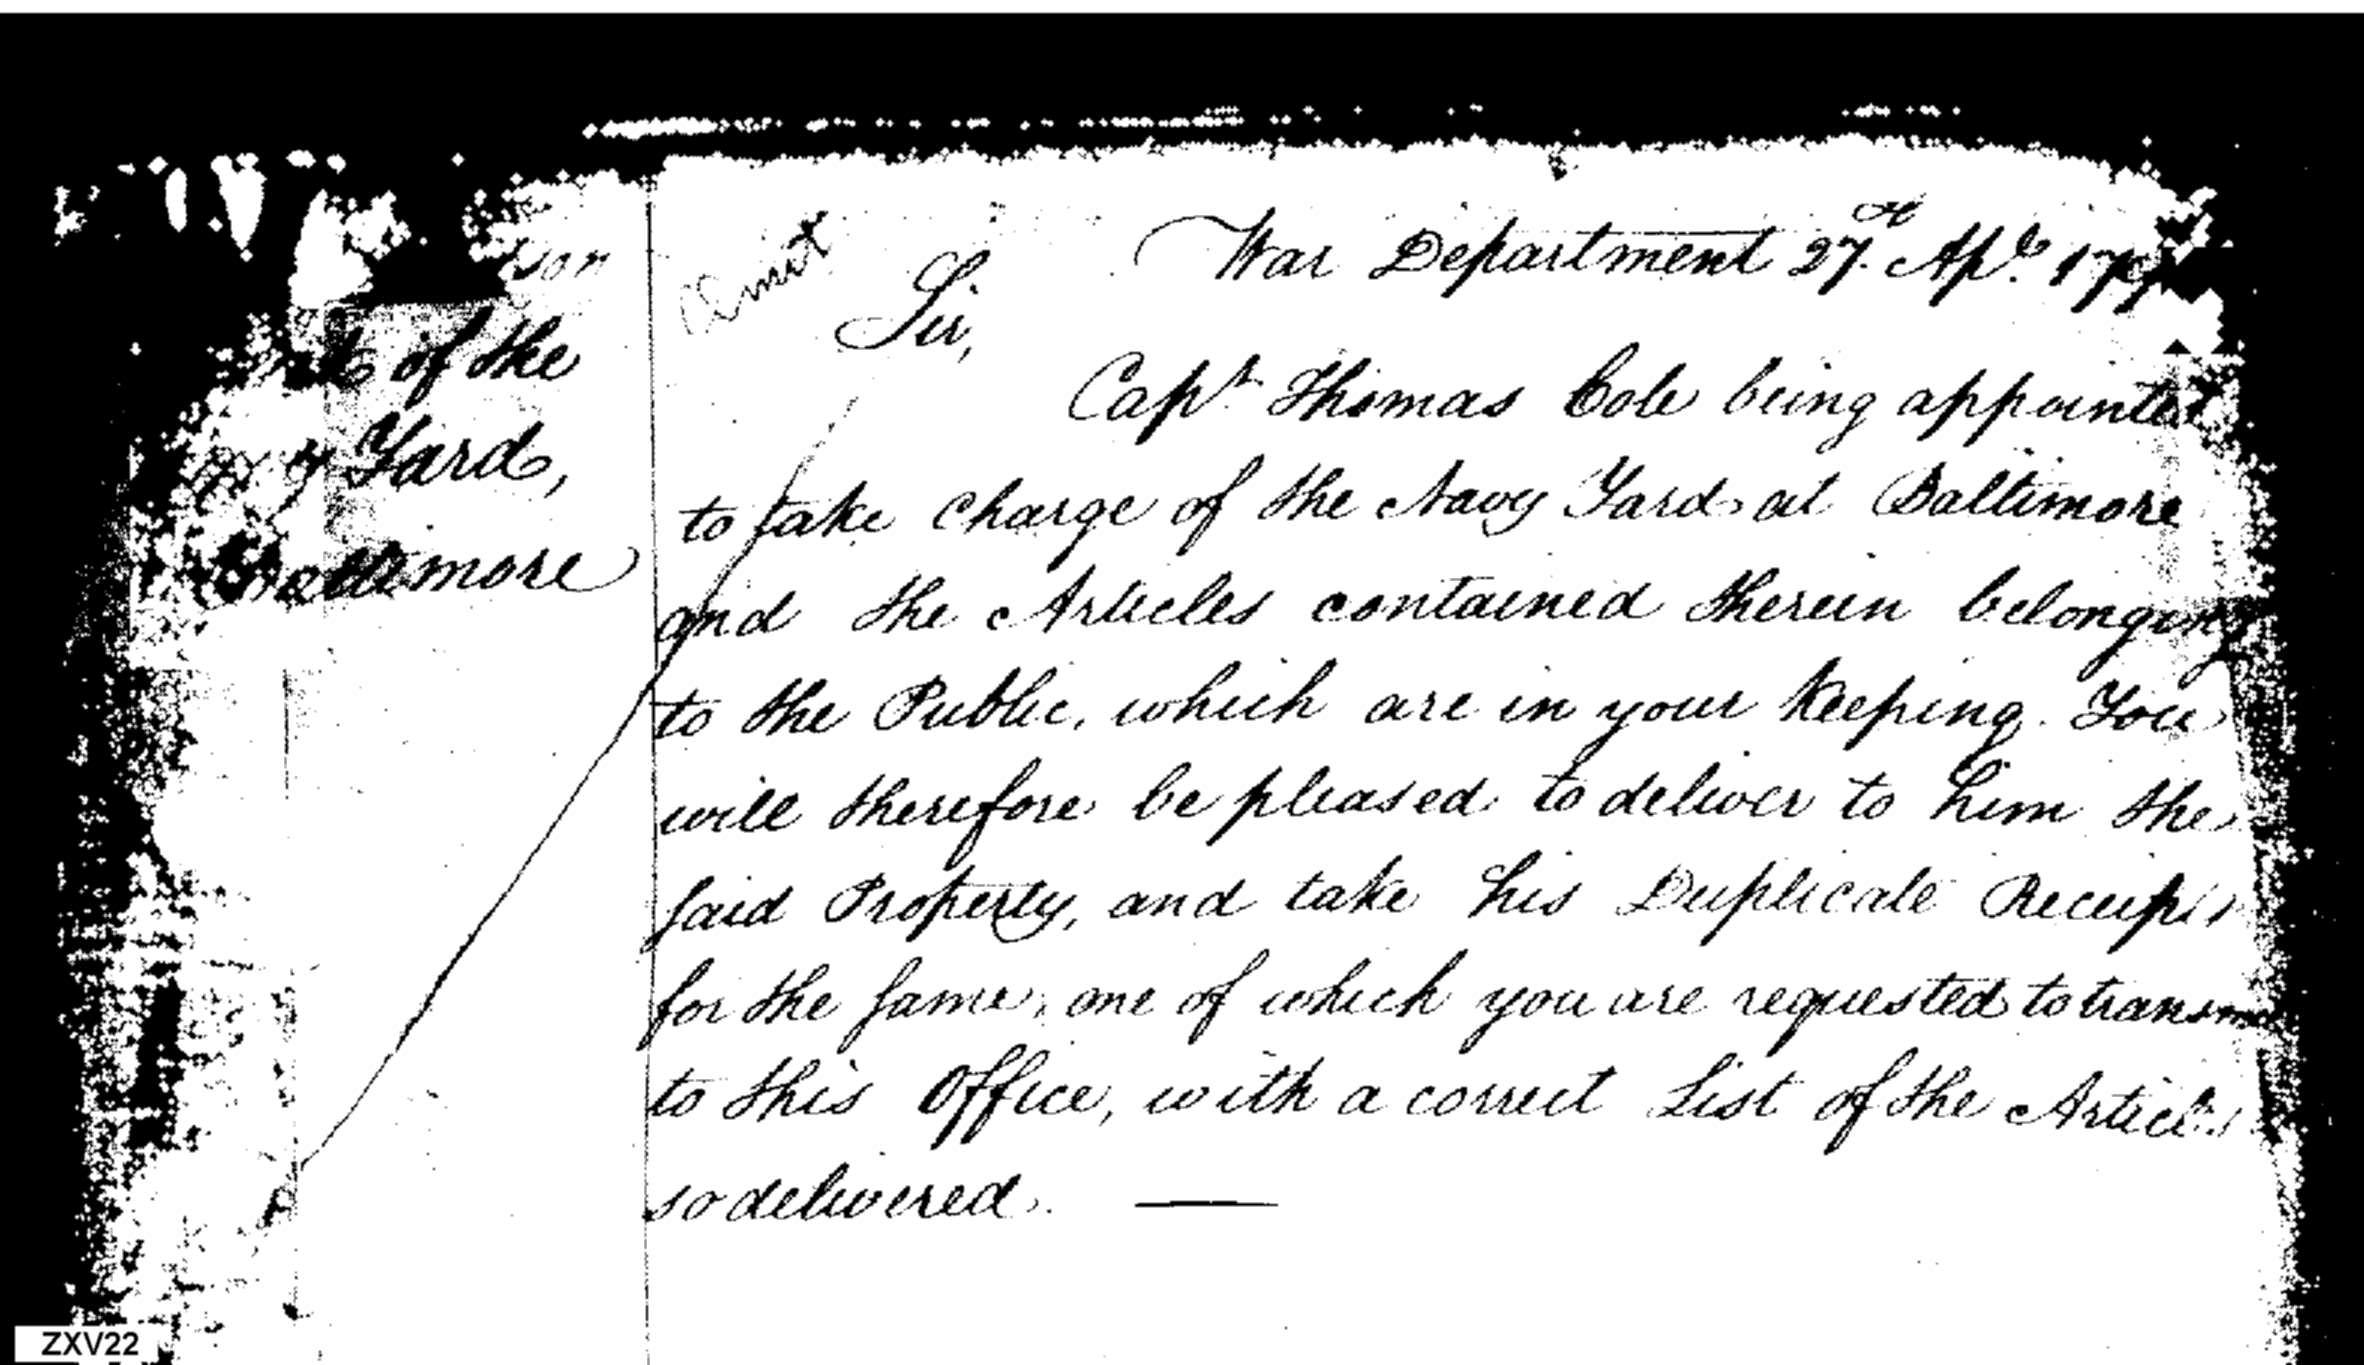 of the
Yard,
Baltimore
Omit
War Department 27th Apl.
Sir,
Capt. Thomas Cole being appointed
to take charge of the Navy Yard at Baltimore
and the Articles contained therein belonging
to the Public, which are in your keeping. You
will therefore be pleased to deliver to him the
said Property, and take his Duplicate Receipts
for the same, one of which you are requested to
to this Office, with a correct List of the Articles
so delivered.
ZXV22